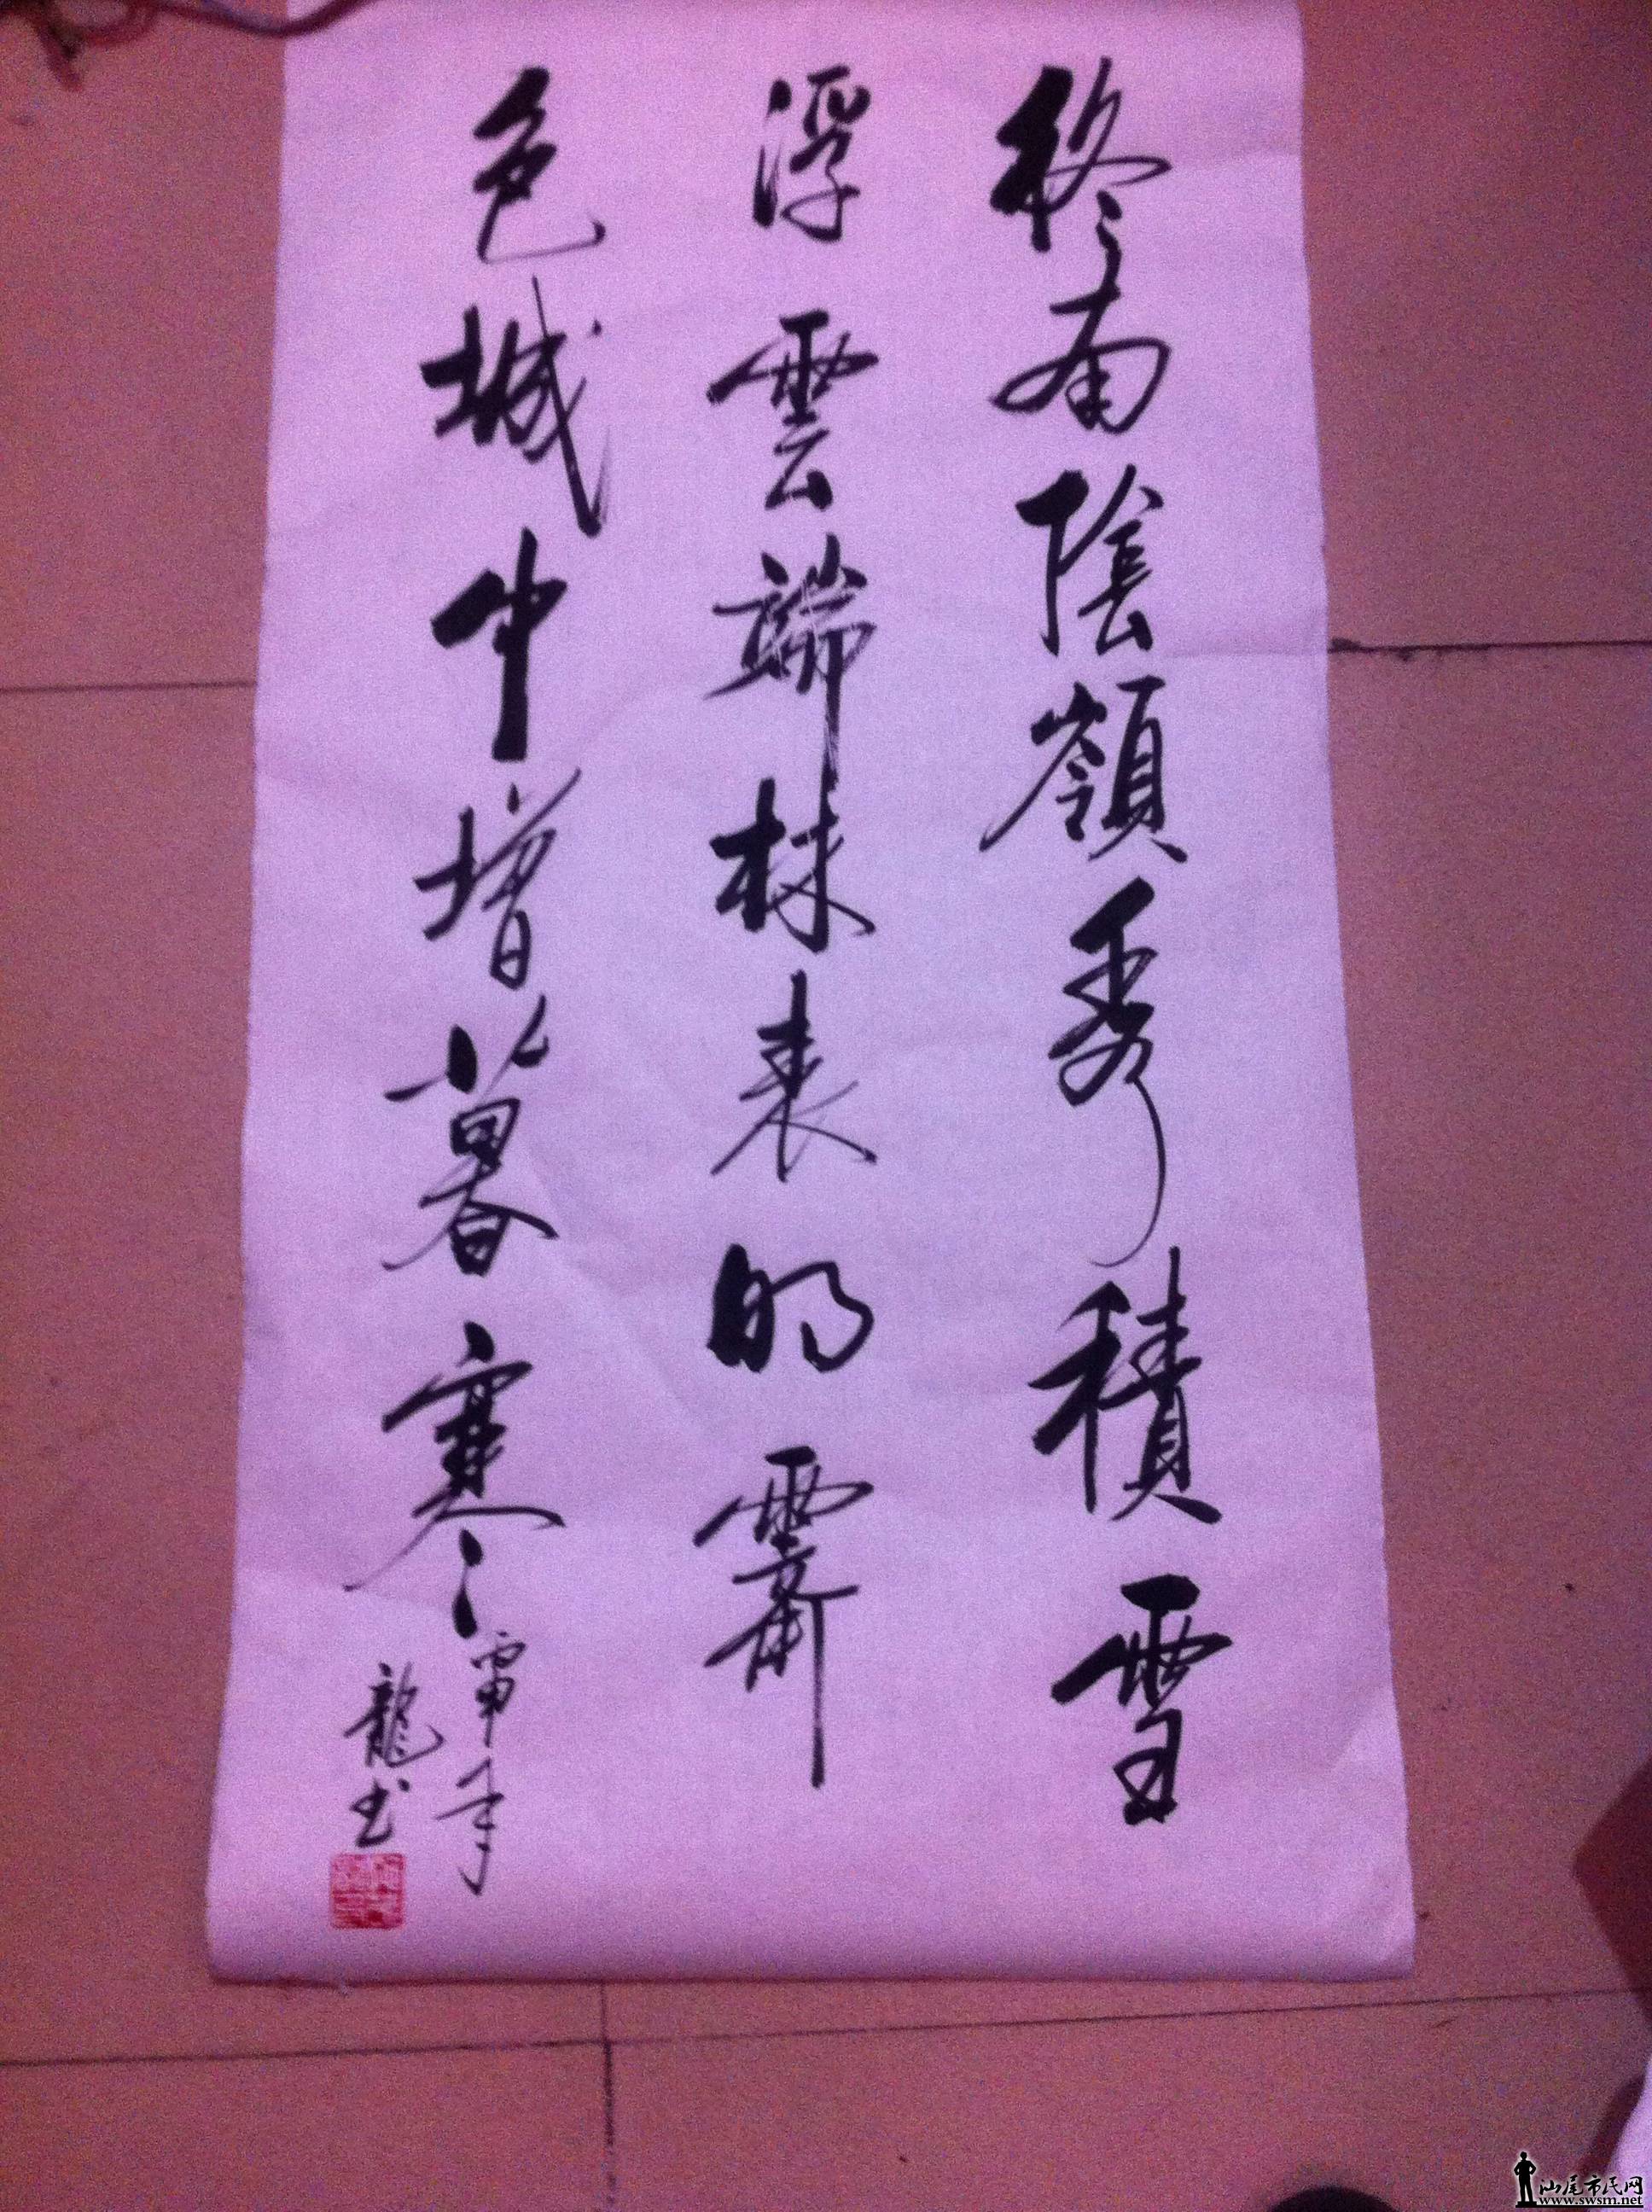 終南陰嶺秀積雪
浮雲端林表明霽
色城中增暮寒
龍書
汕尾市民网
www.swsm.net